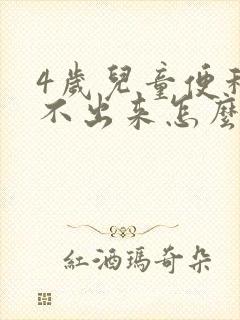 4歲兒童便秘
不出來怎麼
紅酒瑪奇朵